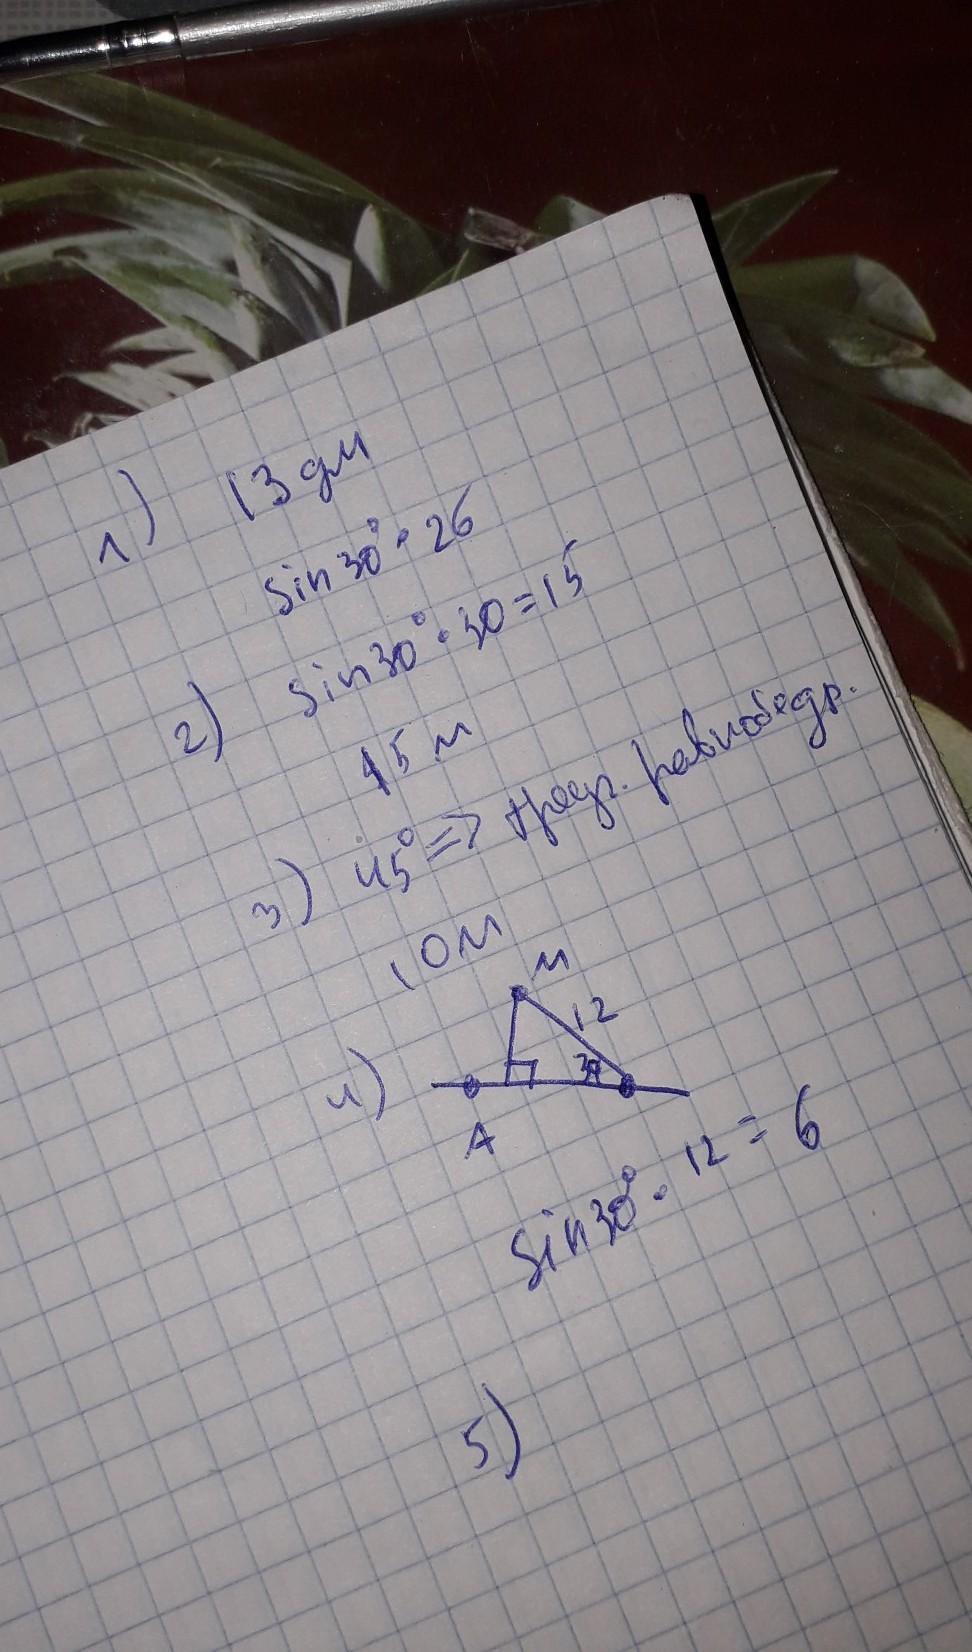 1) 13 дм
sin30°·26
2) sin30°·30=15
15 м
3) 45° => треуг. равнобедр.
10 м
4) М
12
30
А
sin30°·12=6
5)